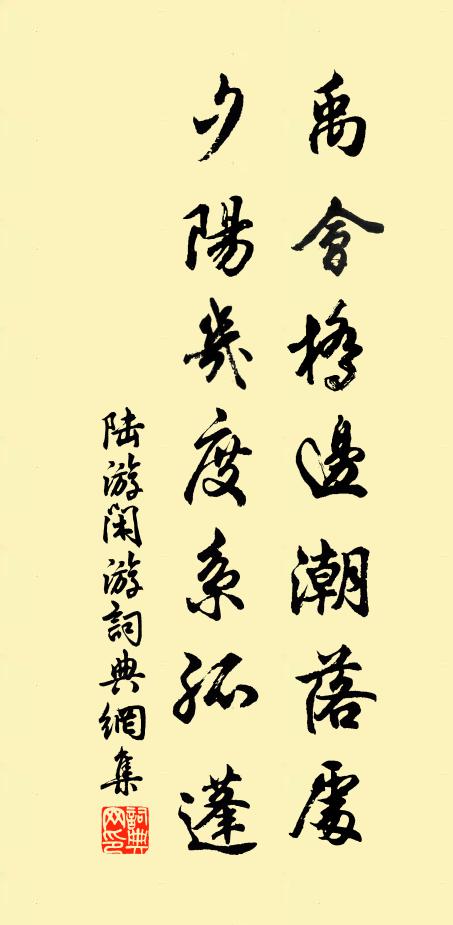 禹會橋邊潮落處
夕陽幾度系孤蓬
陆游閑游詞典網集
詞典網印